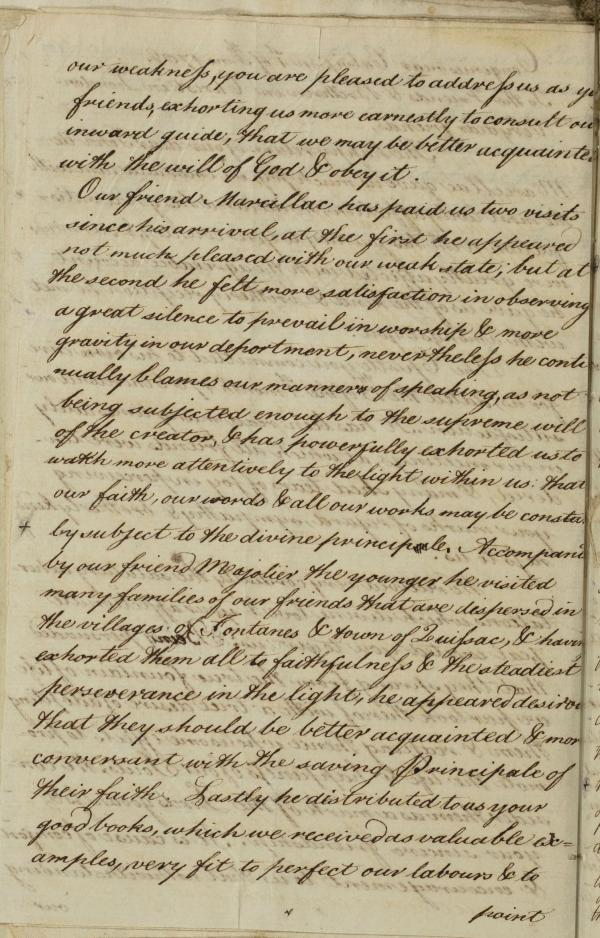 our weakness, you are pleased to address us as yo
friends, exhorting us more earnestly to consult ou
inward guide, that we may be better acquainted
with the will of God & obey it.
Our friend Marcillac has paid us two visits
since his arrival, at the first he appeared
not much pleased with our weak state; but at
the second he felt more satisfaction in observing
a great silence to prevail in worship & more
gravity in our deportment, nevertheless he conti
nually blames our manners of speaking, as not
being subjected enough to the supreme will
of the creator, & has powerfully exhorted us to
watch more attentively to the light within us: that
our faith, our words & all our works may be consta
by subject to the divine principale. Accompani
by our friend Majolier the younger he visited
many families of our friends that are dispersed in
the villages of Fontanes & town of Quissac, & havin
exhorted them all to faithfulness & the steadiest
perseverance in the light, he appeared desirou
that they should be better acquainted & mor
conversant with the saving Principale of
their faith. Lastly he distributed to us your
good books, which we received as valuable ex=
amples, very fit to perfect our labours & to
paint